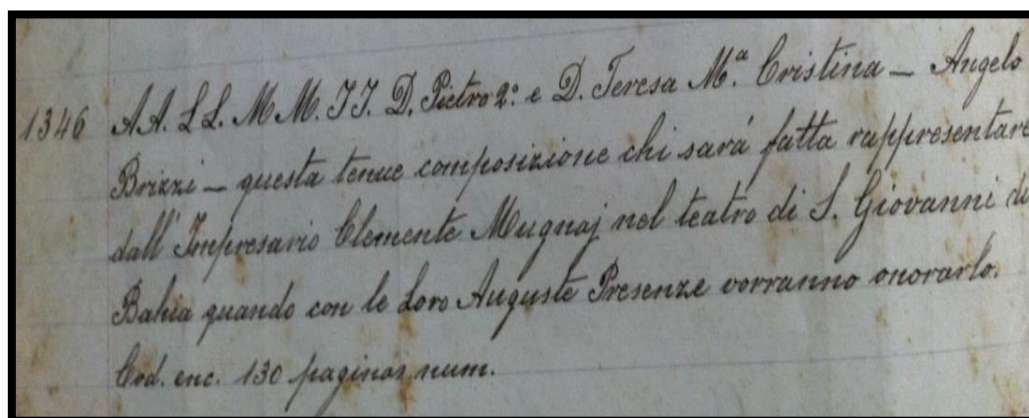 1346 A A. L L. M M. I I. D. Pietro 2º e D. Teresa M.ª Cristina — Angelo
Brizzi — questa tenue composizione chi sará fatta rappresentare
dall' Impresario Clemente Mugnaj nel teatro di S. Giovanni di
Bahia quando con le Loro Auguste Presenze vorranno onorarlo.
Cod. enc. 130 paginas num.